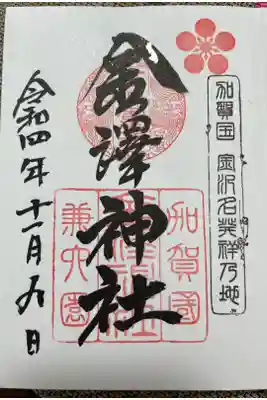 加賀国 金沢名発祥乃地
金澤神社
加賀國
兼六園
令和四年十一月九日